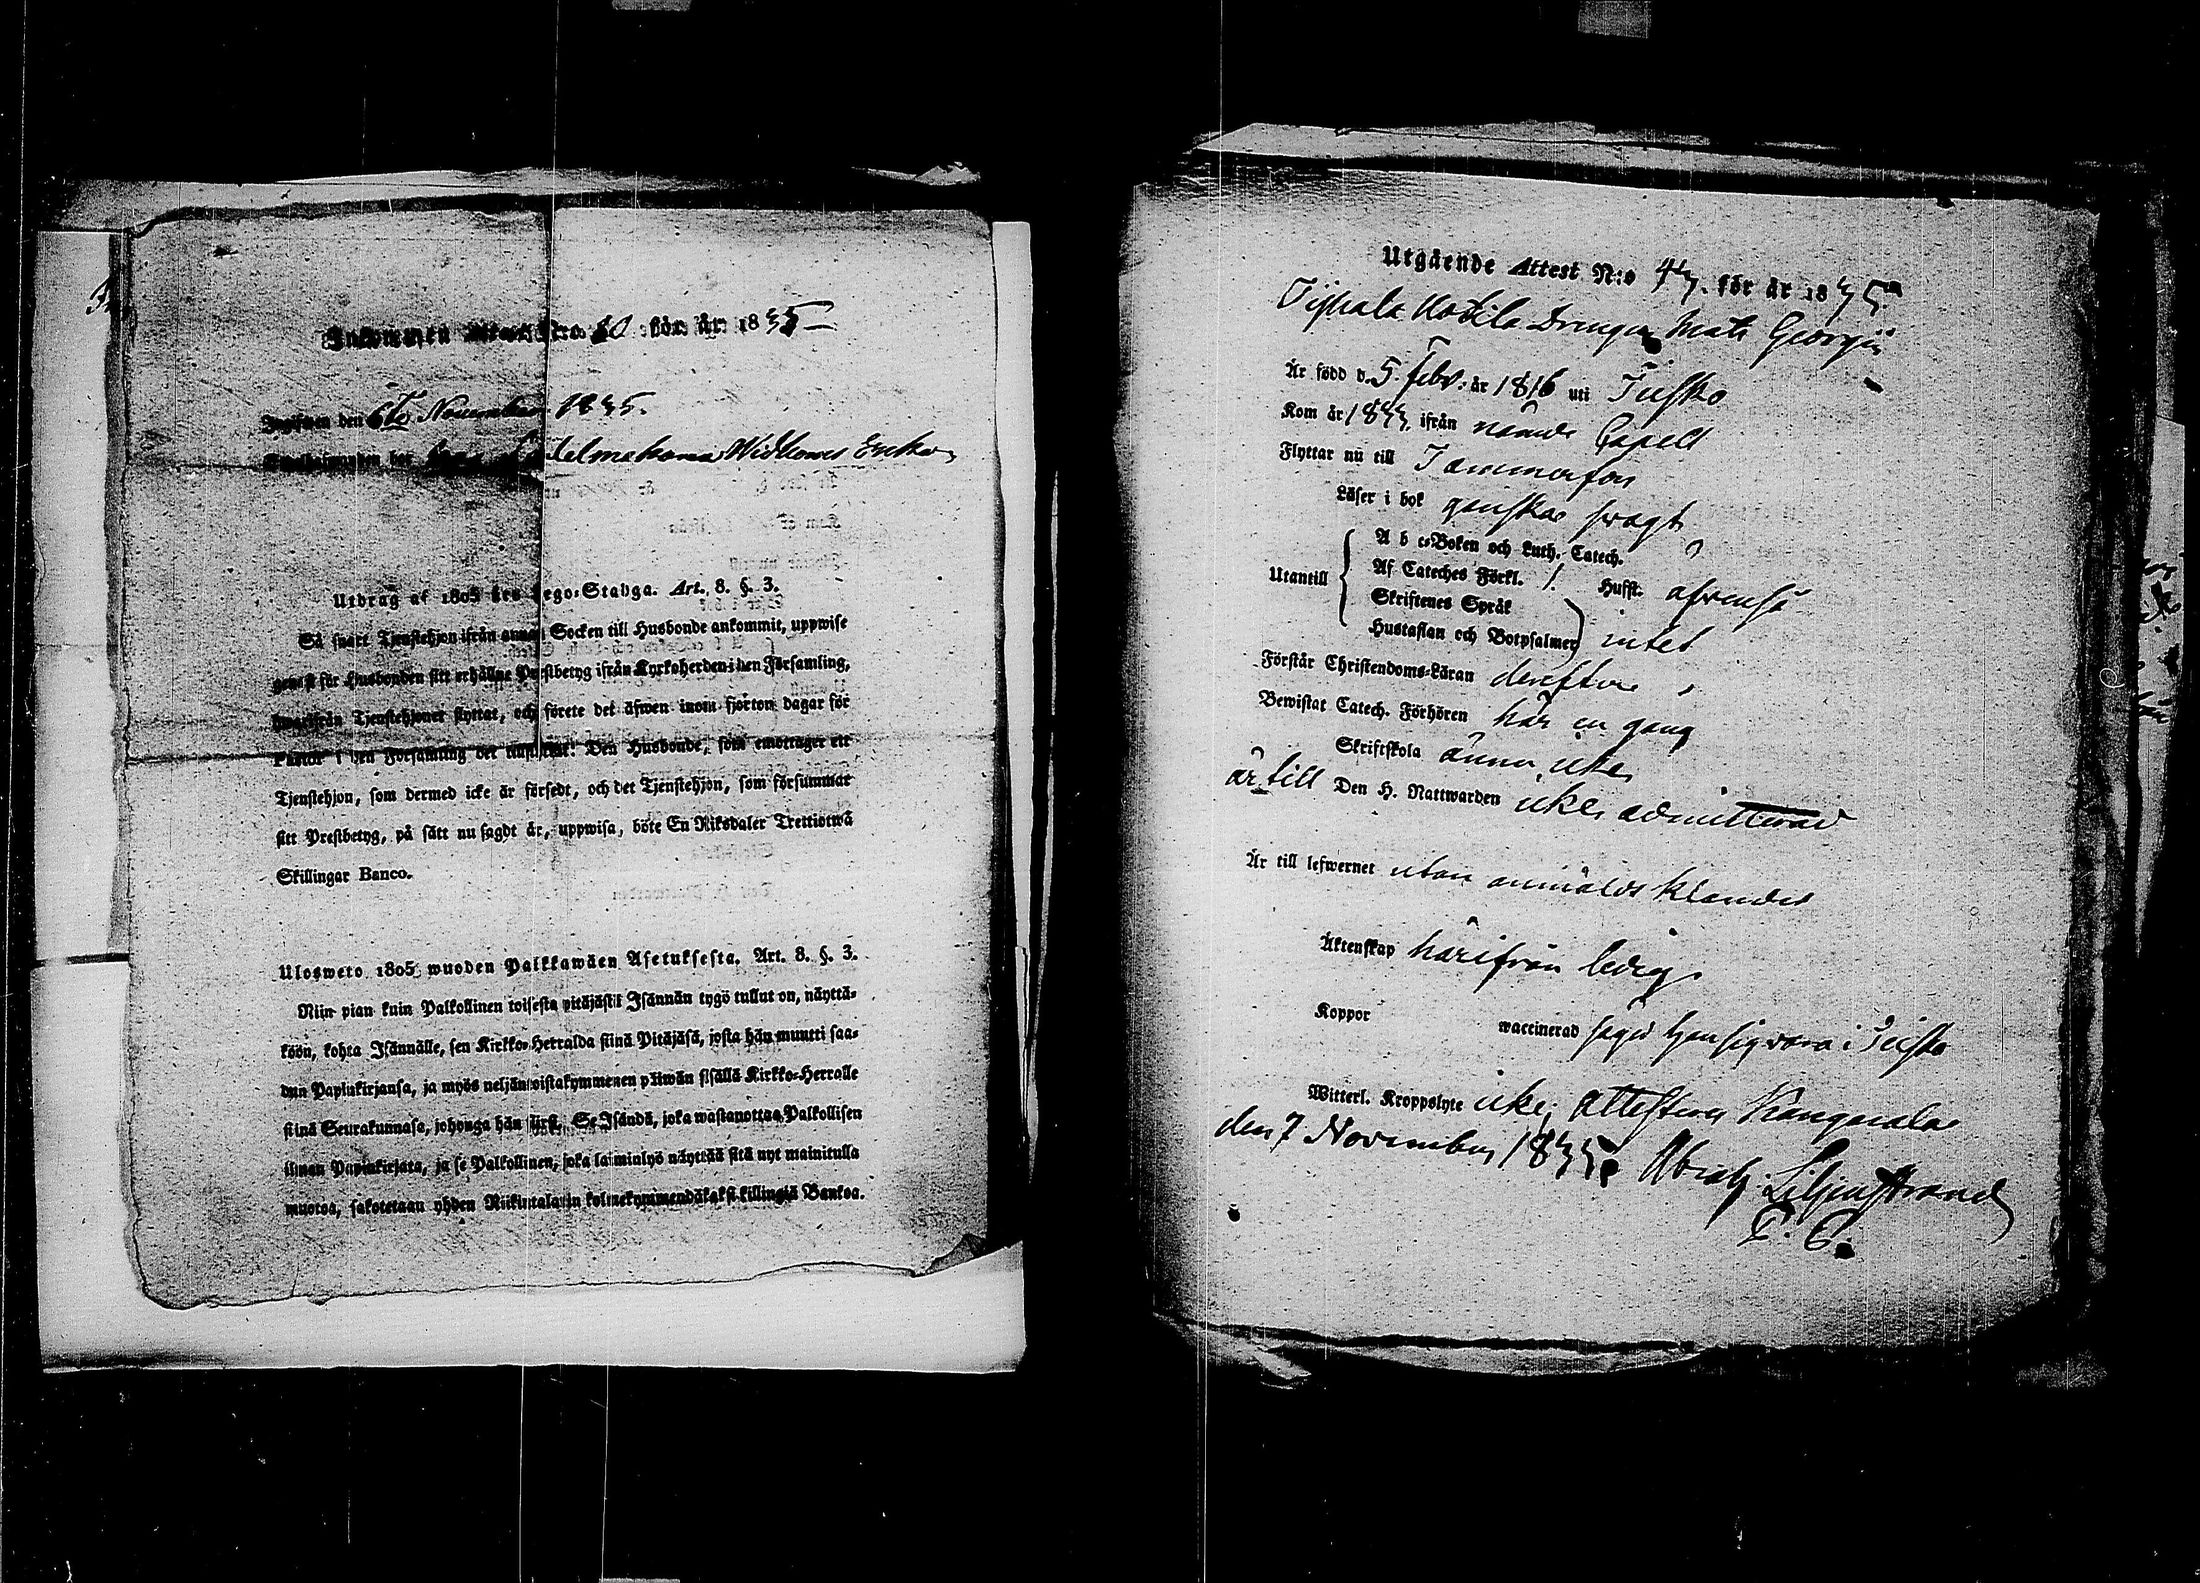 Inkommen Attest Nro 50 för år 1835
Ingifwen den 6te November 1835.
Tjenstehjonden hos Widbomes Enka
Utdrag af 1805 års Lego-Stadga. Art. 8. §. 3.
Så snart Tjenstehjon ifrån annan Socken till Husbonde ankommit, uppwise
genast för Husbonden sitt erhållne Prestbetyg ifrån Kyrkoherden i den Församling,
hwarifrån Tjenstehjonet flyttat, och förete det äfwen inom fjorton dagar för
Pastor i den Församling der
Den Husbonde, som emottager ett
Tjenstehjon, som dermed icke är försedt, och det Tjenstehjon, som försummar
sitt Prestbetyg, på sätt nu sagdt är, uppwisa, böte En Riksdaler Trettiotwå
Skillingar Banco.
Ulosweto 1805 wuoden Palkkawäen Asetuksesta. Art. 8. §. 3.
Niin pian kuin Palkollinen toisesta pitäjästä Isännän tygö tullut on, näyttä-
köön, kohta Isännälle, sen Kirkko-Herralda siinä Pitäjäsä, josta hän muutti saa-
dun Papinkirjansa, ja myös neljäntoistakymmenen päiwän sisällä Kirkko-Herralle
siinä Seurakunnasa, johonga hän siirsi. Se Isändä, joka wastanottaa Palkollisen
ilman Papinkirjata, ja se Palkollinen, joka laiminlyö näyttää sitä nyt mainitulla
muotoa, sakotetaan yhden Riikintalarin kolmekymmendäkaksi killingiä Bankoa.
Utgående Attest N:o 47. för år 1835
Kottila Drengen Mats Georgii
Är född d. 5. Febr. år 1816 uti Teisko
Kom år 1833 ifrån nämde Capell
Flyttar nu till Tammerfors
Läser i bok ganska swagt
Utantill
A b c-Boken och Luth. Catech.
Af Cateches Förkl. 1. Husst. afwenså
Skriftenes Språk
Hustaflan och Botpsalmer intet
Förstår Christendoms-Läran derefter
Bewistat Catech. Förhören här en gång
Skriftskola ännu icke
är till Den H. Nattwarden icke admitterad
Är till lefwernet utan anmäldt klander
Äktenskap härifrån ledig
Koppor waccinerad säger han sig wara i Teisko
Witterl. Kroppslyte icke; attesterar Kangasala
den 7 November 1835. Abrah. Liljenstrand